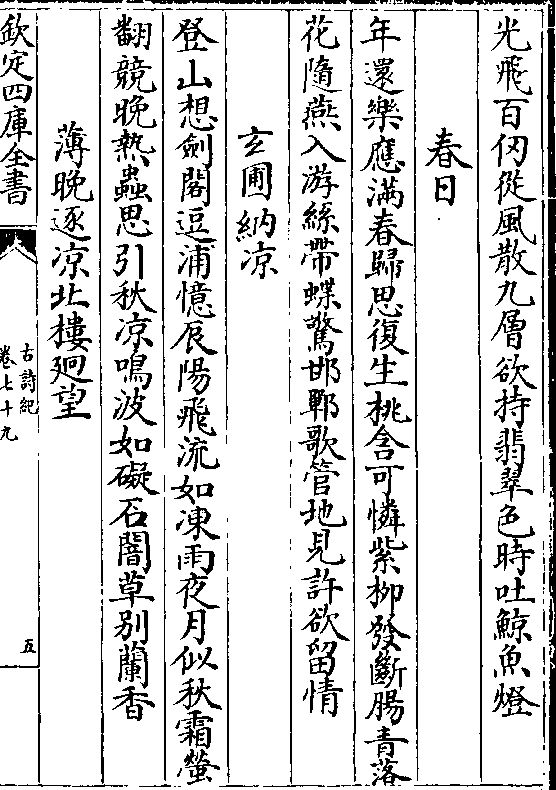 光飛百仭從風散九層欲持翡翠色時吐鯨魚燈
春日
年還樂應滿春歸思復生桃含可憐紫柳發斷腸青落
花隨燕入游絲帶蝶驚邯鄲歌管地見許欲留情
玄圃納凉
登山想劍閣逗浦憶辰陽飛流如凍雨夜月似秋霜螢
翻競晚熱蟲思引秋凉鳴波如礙石闇草别蘭香
薄晚逐凉北樓迥望
欽定四庫全書
古詩紀
卷七十九
五